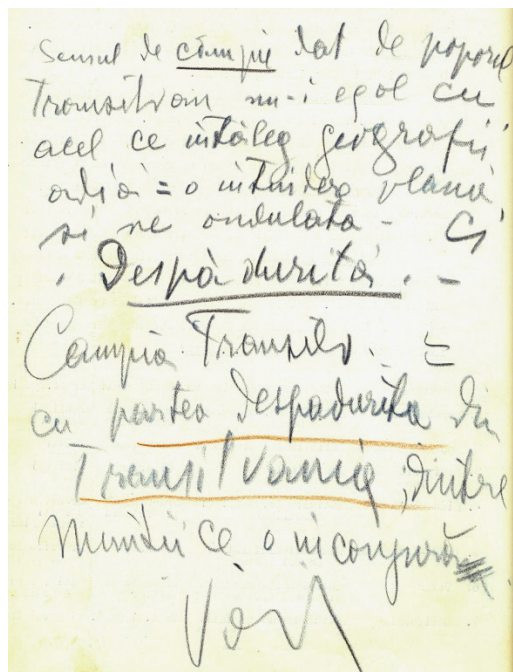 Sensul de câmpie dat de poporul
Transilvan nu-i egal cu
acel ce înțăleg geografii
adică = o întindere plană
și ne ondulată - Ci
. Despădurită. -
Câmpia Transilv. =
cu partea despădurita din
Transilvania, dintre
Munții ce o inconjură